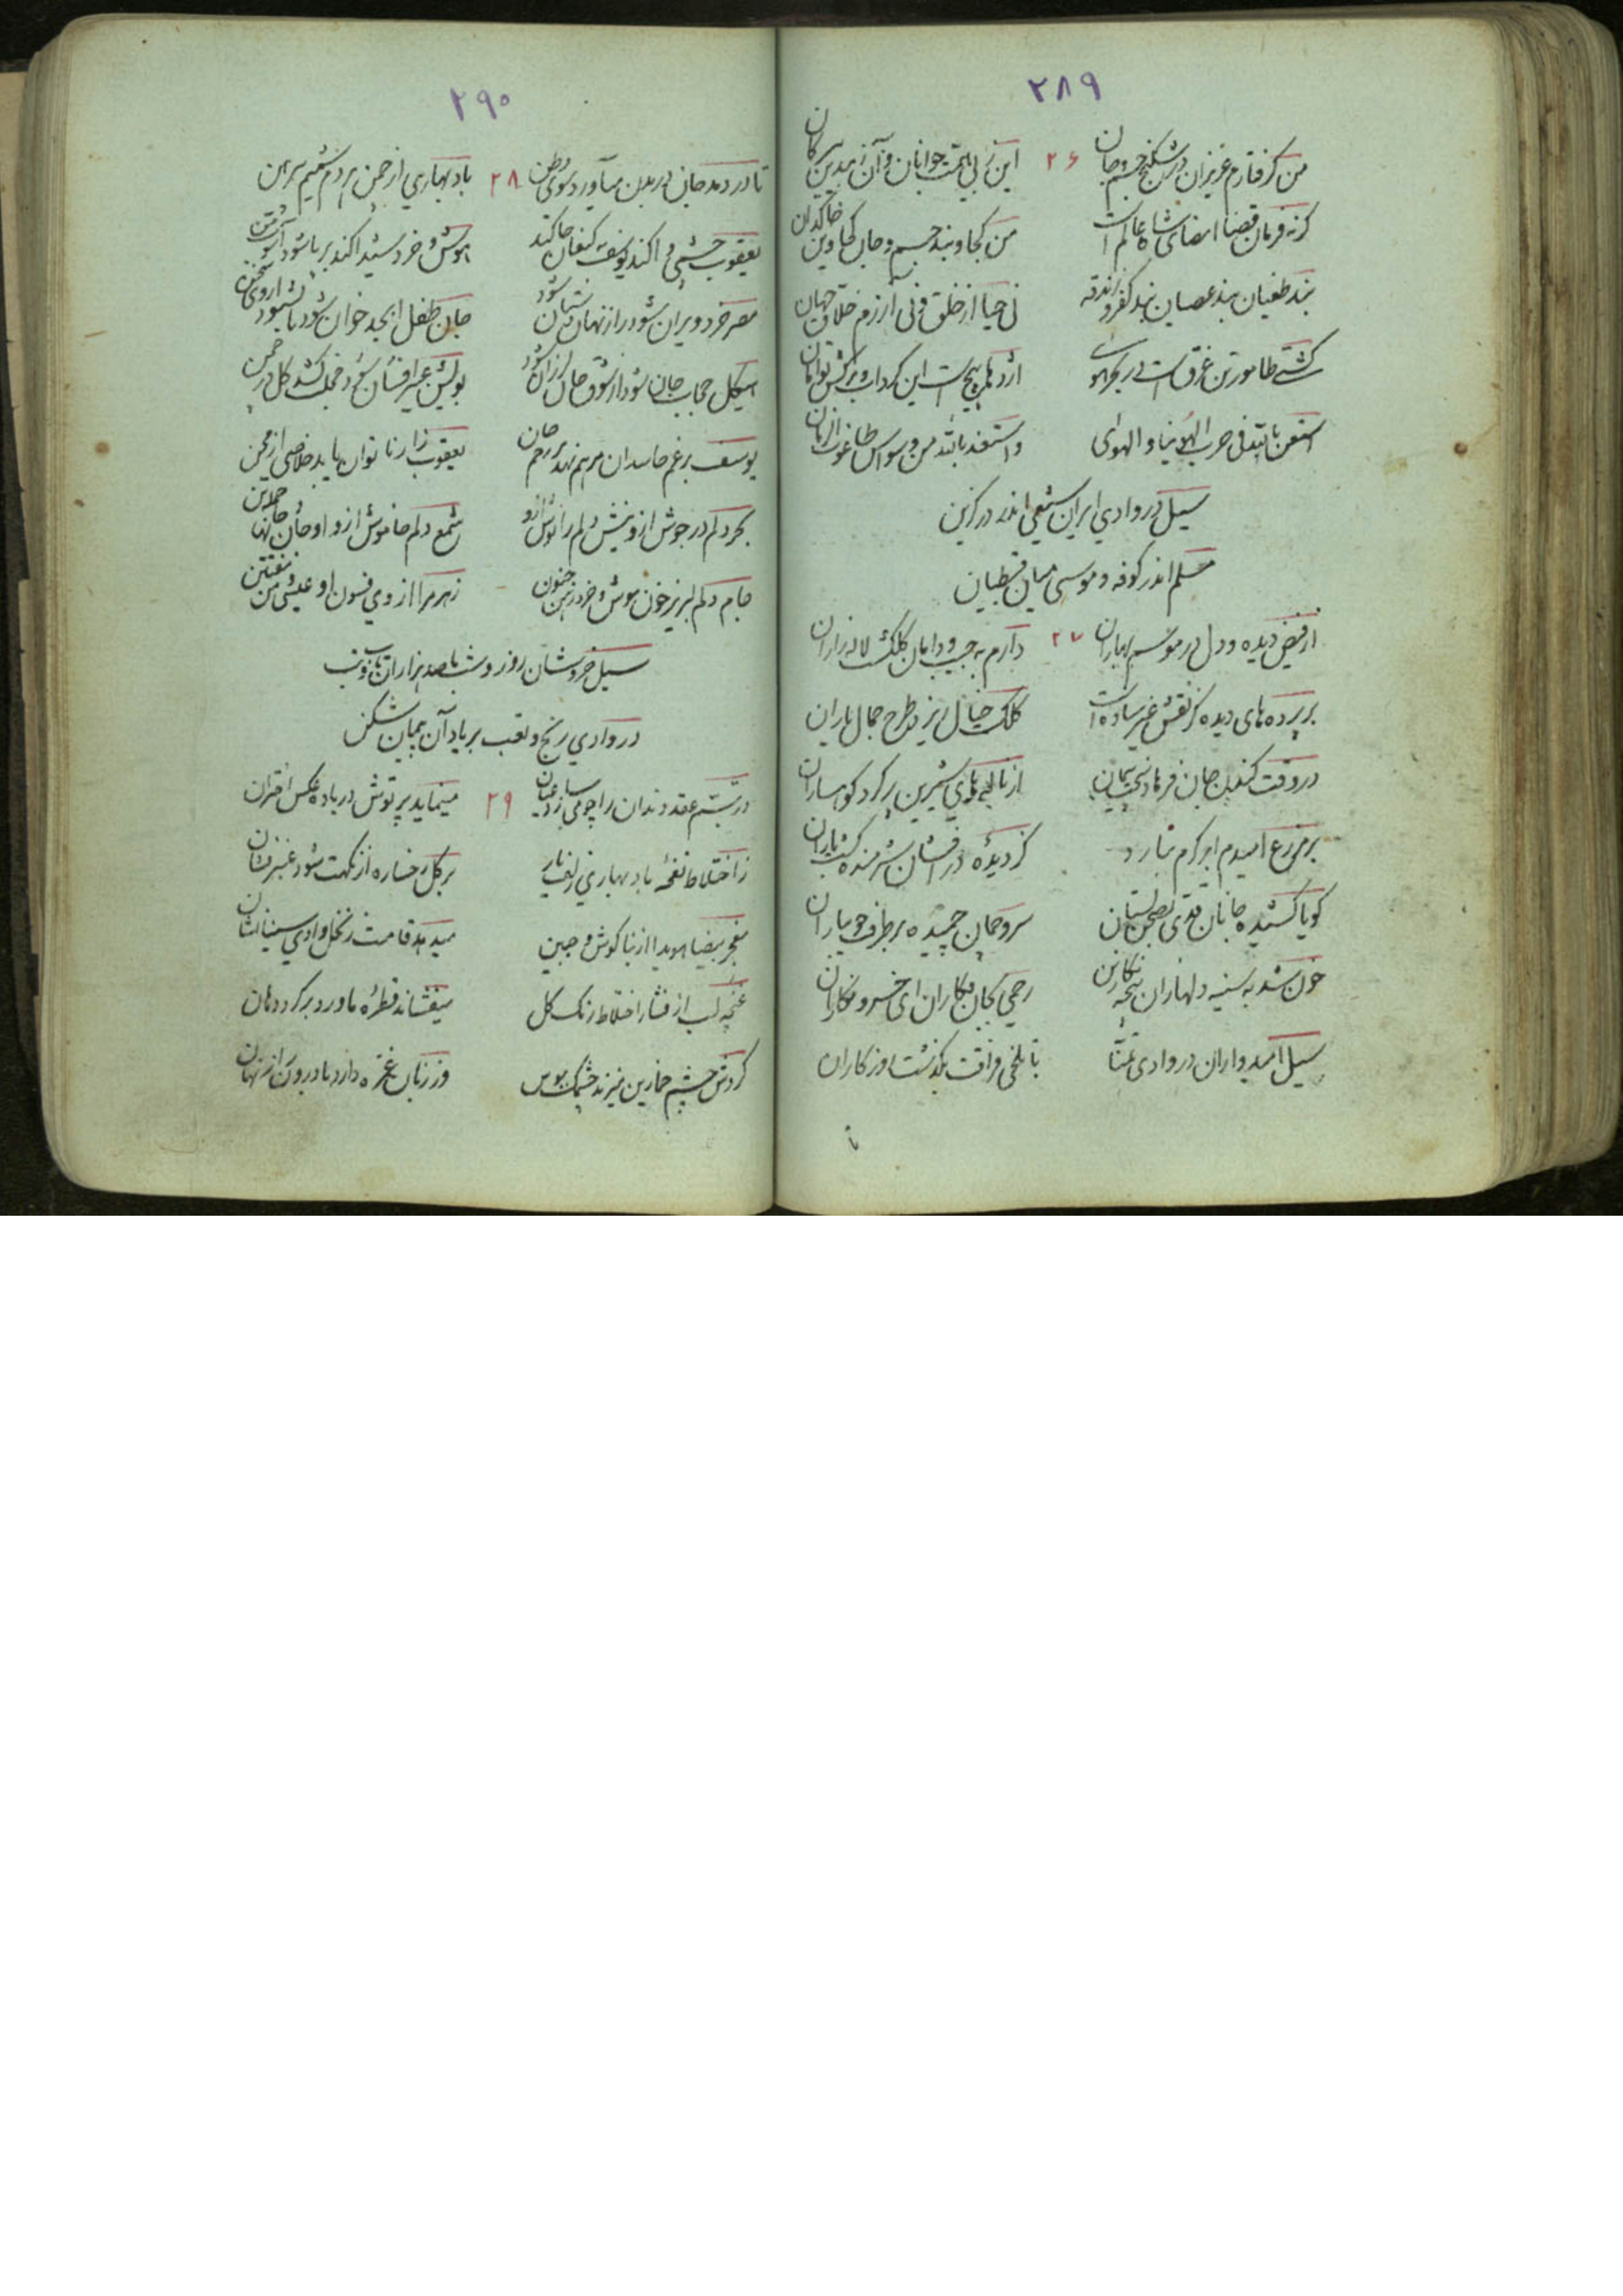 ۲۸۹
من گرفتارم عزیزان در شکنج جسم و جان ۲۶ این ز بی همت جوانان و آن ز بد پیرکان
گرنه فرمان قضا امضای شاه عالم است من کجا و بند جسم و جان کجا وین خاکدان
بند طغیان بند عصیان بند کفر و زندقه نی حیا از خلق و نی آزرم خلاق جهان
کشتی طاموریّن غرق است در بحر اژدها پیچست این گرداب
استعن بالله فی حرب الهوی واستعذ بالله من وسواس طاغوت الزمان
سیل در وادی ایران شیعی اندر درکزین
مسلم اندر کوفه و موسی میان قبطیان
از فیض دیده و دل در موسم بهاران ۲۷ دارم به جیب و دامان گلگشت لاله زاران
بر پرده های دیده کز نقش غیر ساده است کلک خیال ریزد طرح جمال یاران
در وقت کندن جان فرهاد از ناله های شیرین پر کرد کوهساران
بر مزرع امیدم ابر کرم نبارد گر دیدهٔ در افشان شرمنده گشت باران
گویا کشیده جانان قدی به صحن بستان سرو چمان چمیده بر طرف جویباران
خون شد به سینه دلها زان پنجه نگارین رحمی بجان فکاران ای خسرو نگاران
سیل امیدواران در وادی تمنا با تلخی فراقت بگذشت روزگاران
۲۹۰
تا در دمد جان در بدن میآورد سوی وطن ۲۸ باد بهاری از چمن هر دم شمیم پیرهن
یعقوب چشمی وا کند یوسف به کنعان جا کند هوش و خرد شیدا کند برپا شود
مصر خرد ویران شود راز نهان جان طفل ابجد خوان شود تا بشنود از وی سخن
هیکل حجاب جان شود از شوق جان لرزان شود بویش عبیر افشان شود خجلت کشد گل در چمن
یوسف برغم حاسدان مرهم نهد بر زخم جان یعقوب زار ناتوان یابد خلاصی از محن
بحر دلم در جوش ازو نیش دلم را نوش ازو شمع دلم خاموش ازو او جان جانها
جام دلم لبریز خون هوش و خرد رهن جنون زهر مرا از وی فسون او عیش من
سیل خروشان روز و شب با صد هزاران تاب و تب
در وادی رنج و تعب بر یاد آن پیمان شکن
در تبسم عقد دندان را چو می سازد عیان ۲۹ مینماید پرتوش در باده عکس اختران
ز اختلاط نفخهٔ باد بهاری زلف یار بر گل رخساره از نکهت شود عنبر فشان
فجر بیضا هویدا از بناگوش و جبین میدهد قامت ز نخل وادی سینا نشان
غنچه لب از فشار اختلاط رنگ گل میفشاند قطرهٔ ماورد بر گرد دهان
گردش چشم خمارین میزند چشمک ببوس وز زبان غمزه دارد با درون راز نهان